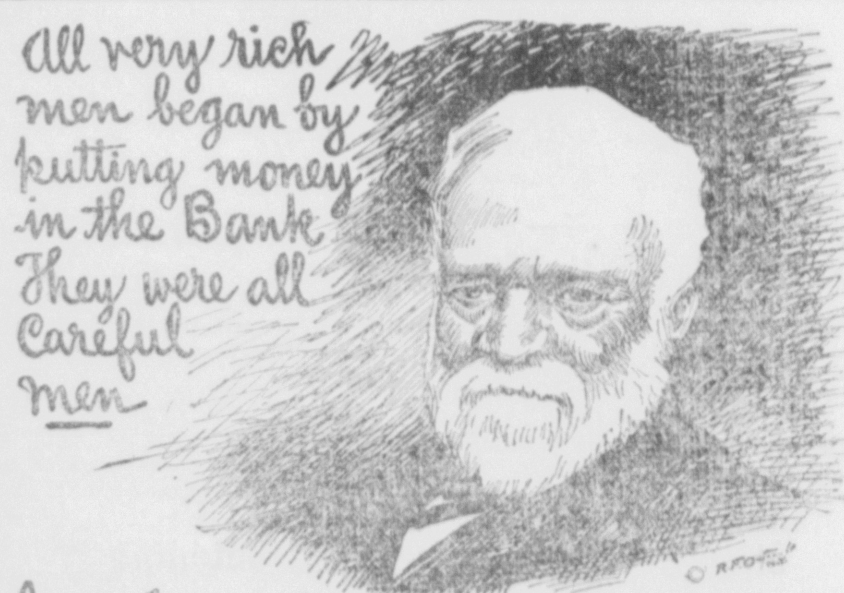 All very rich
men began by
putting money
in the Bank
They were all
Careful
men